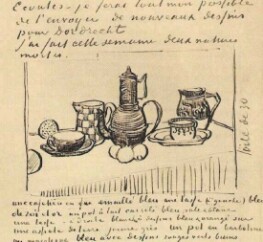 Ecoutes - je ferai tout mon possible
de t'envoyer de nouveaux dessins
pour Dordrecht
J'ai fait cette semaine deux natures
mortes.
toile de 30
une cafetière en fer émaillé bleu une tasse (à gauche) bleu
de roi et or un pot à lait carrelé bleu
une tasse à droite blanche dessins bleus orangés sur
une assiette de terre jaune gris un pot en barbotine
ou majolique bleu avec dessins rouges verts bruns